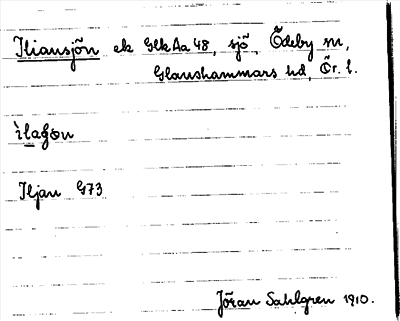 Iliansjön ek GlkAa 48, sjö, Ödeby sn,
Glanshammars hd, Ör. l.
Iljan G73
Jöran Sahlgren 1910.